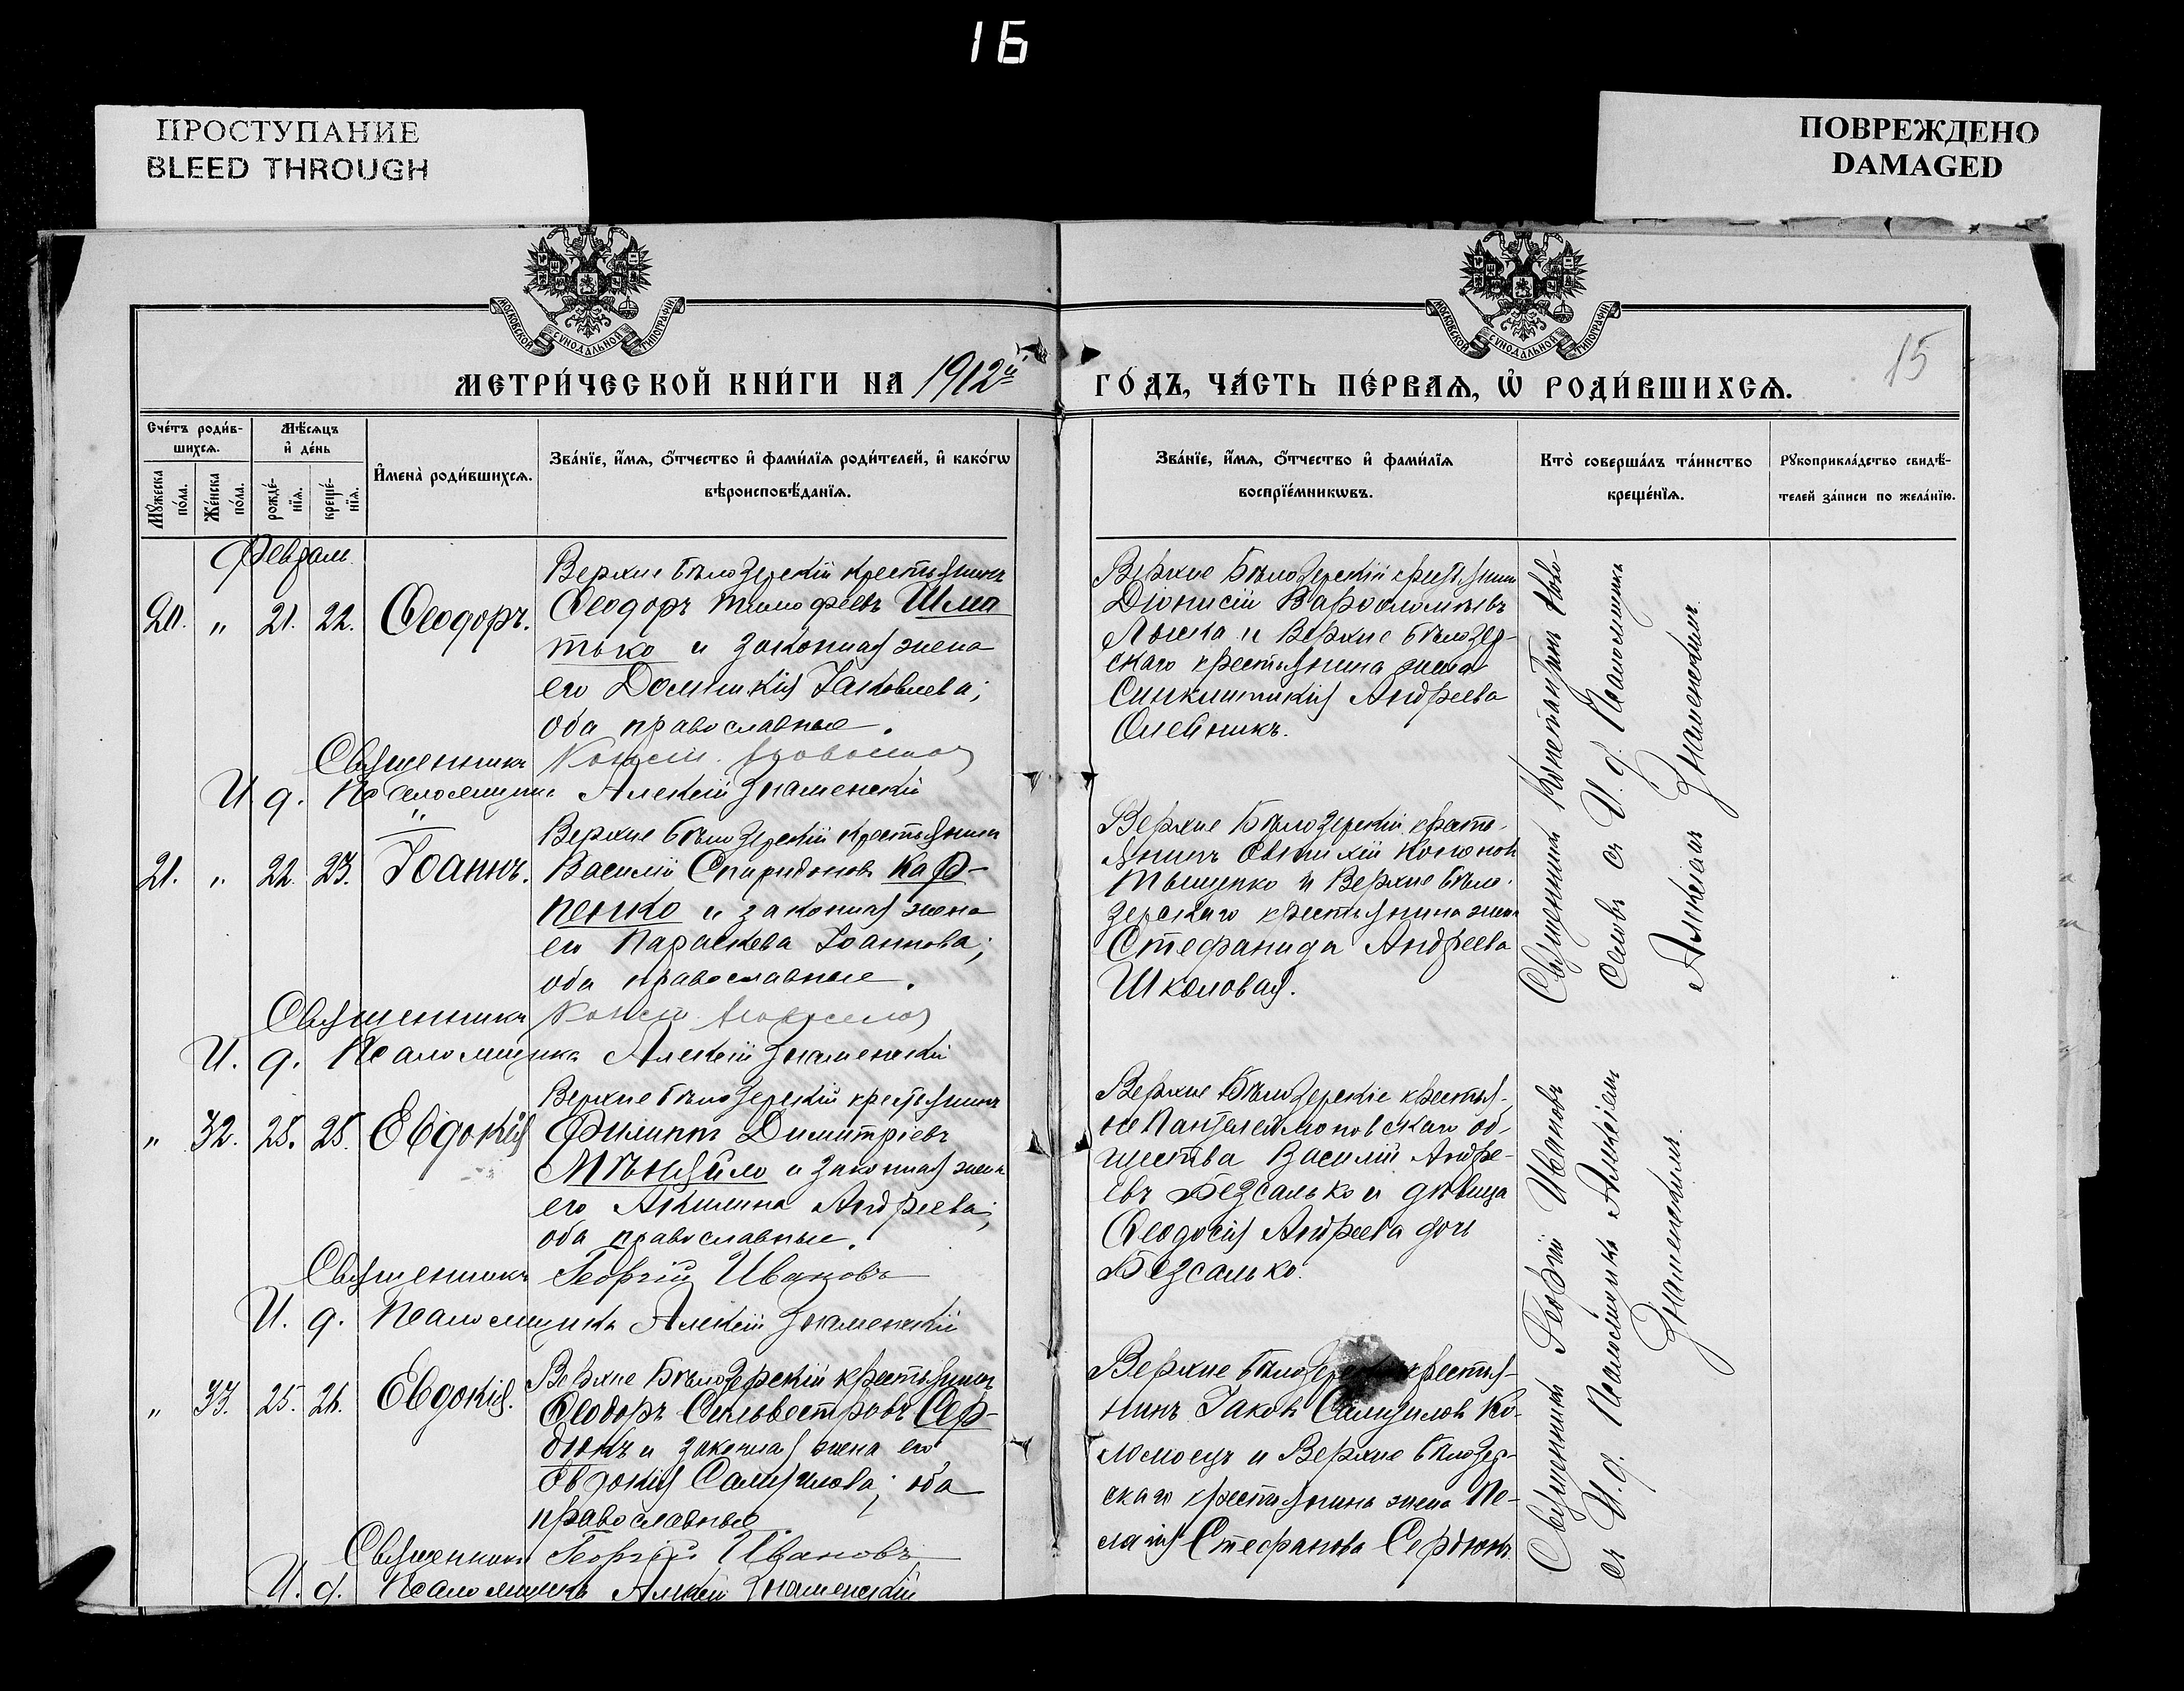 16
ПРОСТУПАНИЕ
BLEED THROUGH
ПОВРЕЖДЕНО
DAMAGED
МОСКОВСКОЙ СѴНОДАЛЬНОЙ ТИПОГРАФІИ
МОСКОВСКОЙ СѴНОДАЛЬНОЙ ТИПОГРАФІИ
15
МЕТРИ́ЧЕСКОЙ КНИ́ГИ НА 1912й
ГО́ДЪ, ЧА́СТЬ ПЕ́РВАѦ, Ѡ҆ РОДИ́ВШИХСѦ.
Сче́тъ роди́в-
шихсѧ.
Мꙋ́жеска по́ла.
Же́нска по́ла.
Мѣ́сѧцъ
и҆ де́нь
рожде́-
нїѧ.
креще́-
нїѧ.
И҆мена̀ роди́вшихсѧ.
Зва́нїе, и҆́мѧ, ѻ҆́тчество и҆ фами́лїѧ роди́телей, и҆ како́гѡ
вѣроисповѣ́данїѧ.
Зва́нїе, и҆́мѧ, ѻ҆́тчество и҆ фами́лїѧ
воспрїе́мникѡвъ.
Кто̀ соверша́лъ та́инство
креще́нїѧ.
Рꙋкоприкла́дство свидѣ́-
телей за́писи по жела́нїю.
Февраль
20. " 21. 22. Ѳеодоръ.
Верхне Бѣлозерскій крестьянинъ
Ѳеодоръ Тимофеевъ Шма
тько и законная жена
его Домникія Іаковлева;
оба православные.
Священникъ Конст.
И. д. Псаломщика Алексій Знаменскій
Верхне Бѣлозерскій крестьянинъ
Діонисій Варѳоломѣевъ
и Верхне Бѣлозер-
скаго крестьянина жена
Синклитикія Андреева
Олейникъ.
Священникъ Константинъ Ново-
сельъ съ И. д. Псаломщика
Алексіемъ Знаменскимъ.
21. " 22. 23. Іоаннъ.
Верхне Бѣлозерскій крестьянинъ
Василій Спиридоновъ Кар-
пенко и законная жена
его Параскева Іоаннова;
оба православные.
Священникъ Конст.
И. д. Псаломщика Алексій Знаменскій
Верхне Бѣлозерскій кресть-
янинъ Евтихій Кононовъ
Тыщенко и Верхне Бѣло-
зерскаго крестьянина жена
Стефанида Андреева
Школовая.
" 32. 25. 25. Евдокія
Верхне Бѣлозерскій крестьянинъ
Филиппъ Димитріевъ
Мѣняйло и законная жена
его Акилина Андреева;
оба православные.
Священникъ Георгій Ивановъ
И. д. Псаломщика Алексій Знаменскій
Верхне Бѣлозерскіе крестья-
не Пантелеймоновскаго об-
щества Василій Андре-
евъ Безсалько и дѣвица
Ѳеодосія Андреева дочь
Безсалько.
Священникъ Георгій Ивановъ
съ И. д. Псаломщика Алексіемъ
Знаменскимъ.
" 33. 25. 26. Евдокія.
Верхне Бѣлозерскій крестьянинъ
Ѳеодоръ Сильвестровъ Сер-
дюкъ и законная жена его
Евдокія Самуилова; оба
православные.
Священникъ Георгій Ивановъ
И. д. Псаломщика Алексій Знаменскій
Верхне Бѣлозерскій крестья-
нинъ Іаковъ Самуиловъ Ко-
ломоецъ и Верхне Бѣлозер-
скаго крестьянина жена Пе-
лагія Стефанова Сердюкъ.